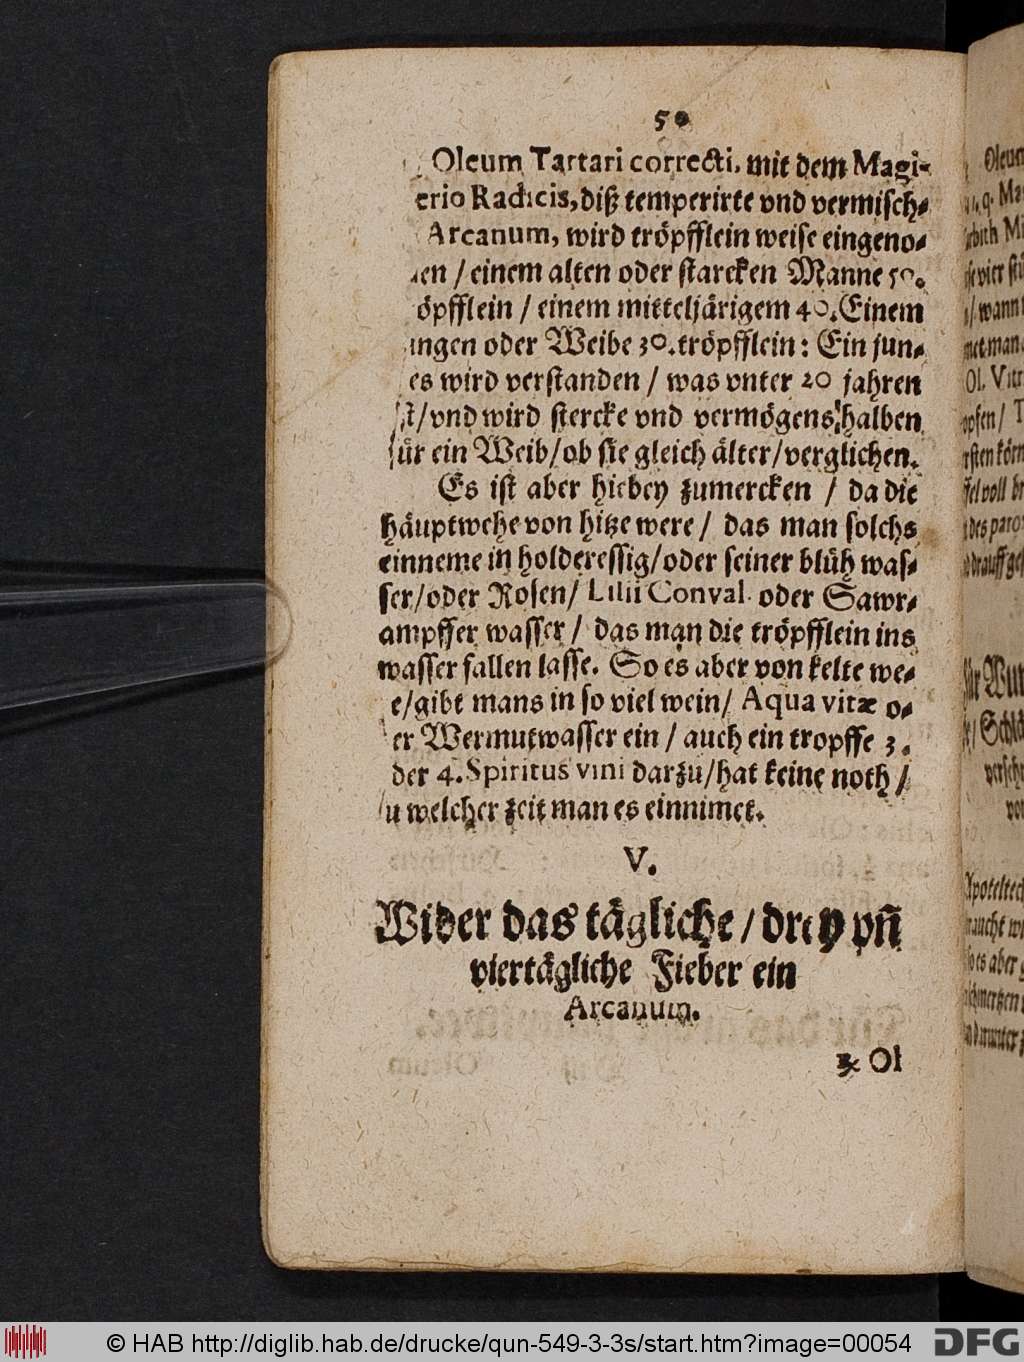 50
Oleum Tartari correcti, mit dem Magi-
erio Radicis, diß temperirte vnd vermisch-
Arcanum, wird tröpfflein weise eingeno-
en / einem alten oder starcken Manne 50.
öpfflein / einem mitteljärigem 40. Einem
ungen oder Weibe 30. tröpfflein: Ein jun-
es wird verstanden / was vnter 20 jahren
st / vnd wird stercke vnd vermögens halben
für ein Weib / ob sie gleich älter / verglichen.
Es ist aber hiebey zumercken / da die
häuptwehe von hitze were / das man solchs
einneme in holderessig / oder seiner blüh was-
ser / oder Rosen / Lilii Conval. oder Sawr-
ampffer wasser / das man die tröpfflein ins
wasser fallen lasse. So es aber von kelte we-
e / gibt mans in so viel wein / Aqua vitæ o-
er Wermutwasser ein / auch ein tropffe 3.
der 4. Spiritus vini darzu / hat keine noth /
u welcher zeit man es einnimet.
V.
Wider das tägliche / drey vñ
viertägliche Fieber ein
Arcanum.
℞ Ol
© HAB http://diglib.hab.de/drucke/qun-549-3-3s/start.htm?image=00054
DFG